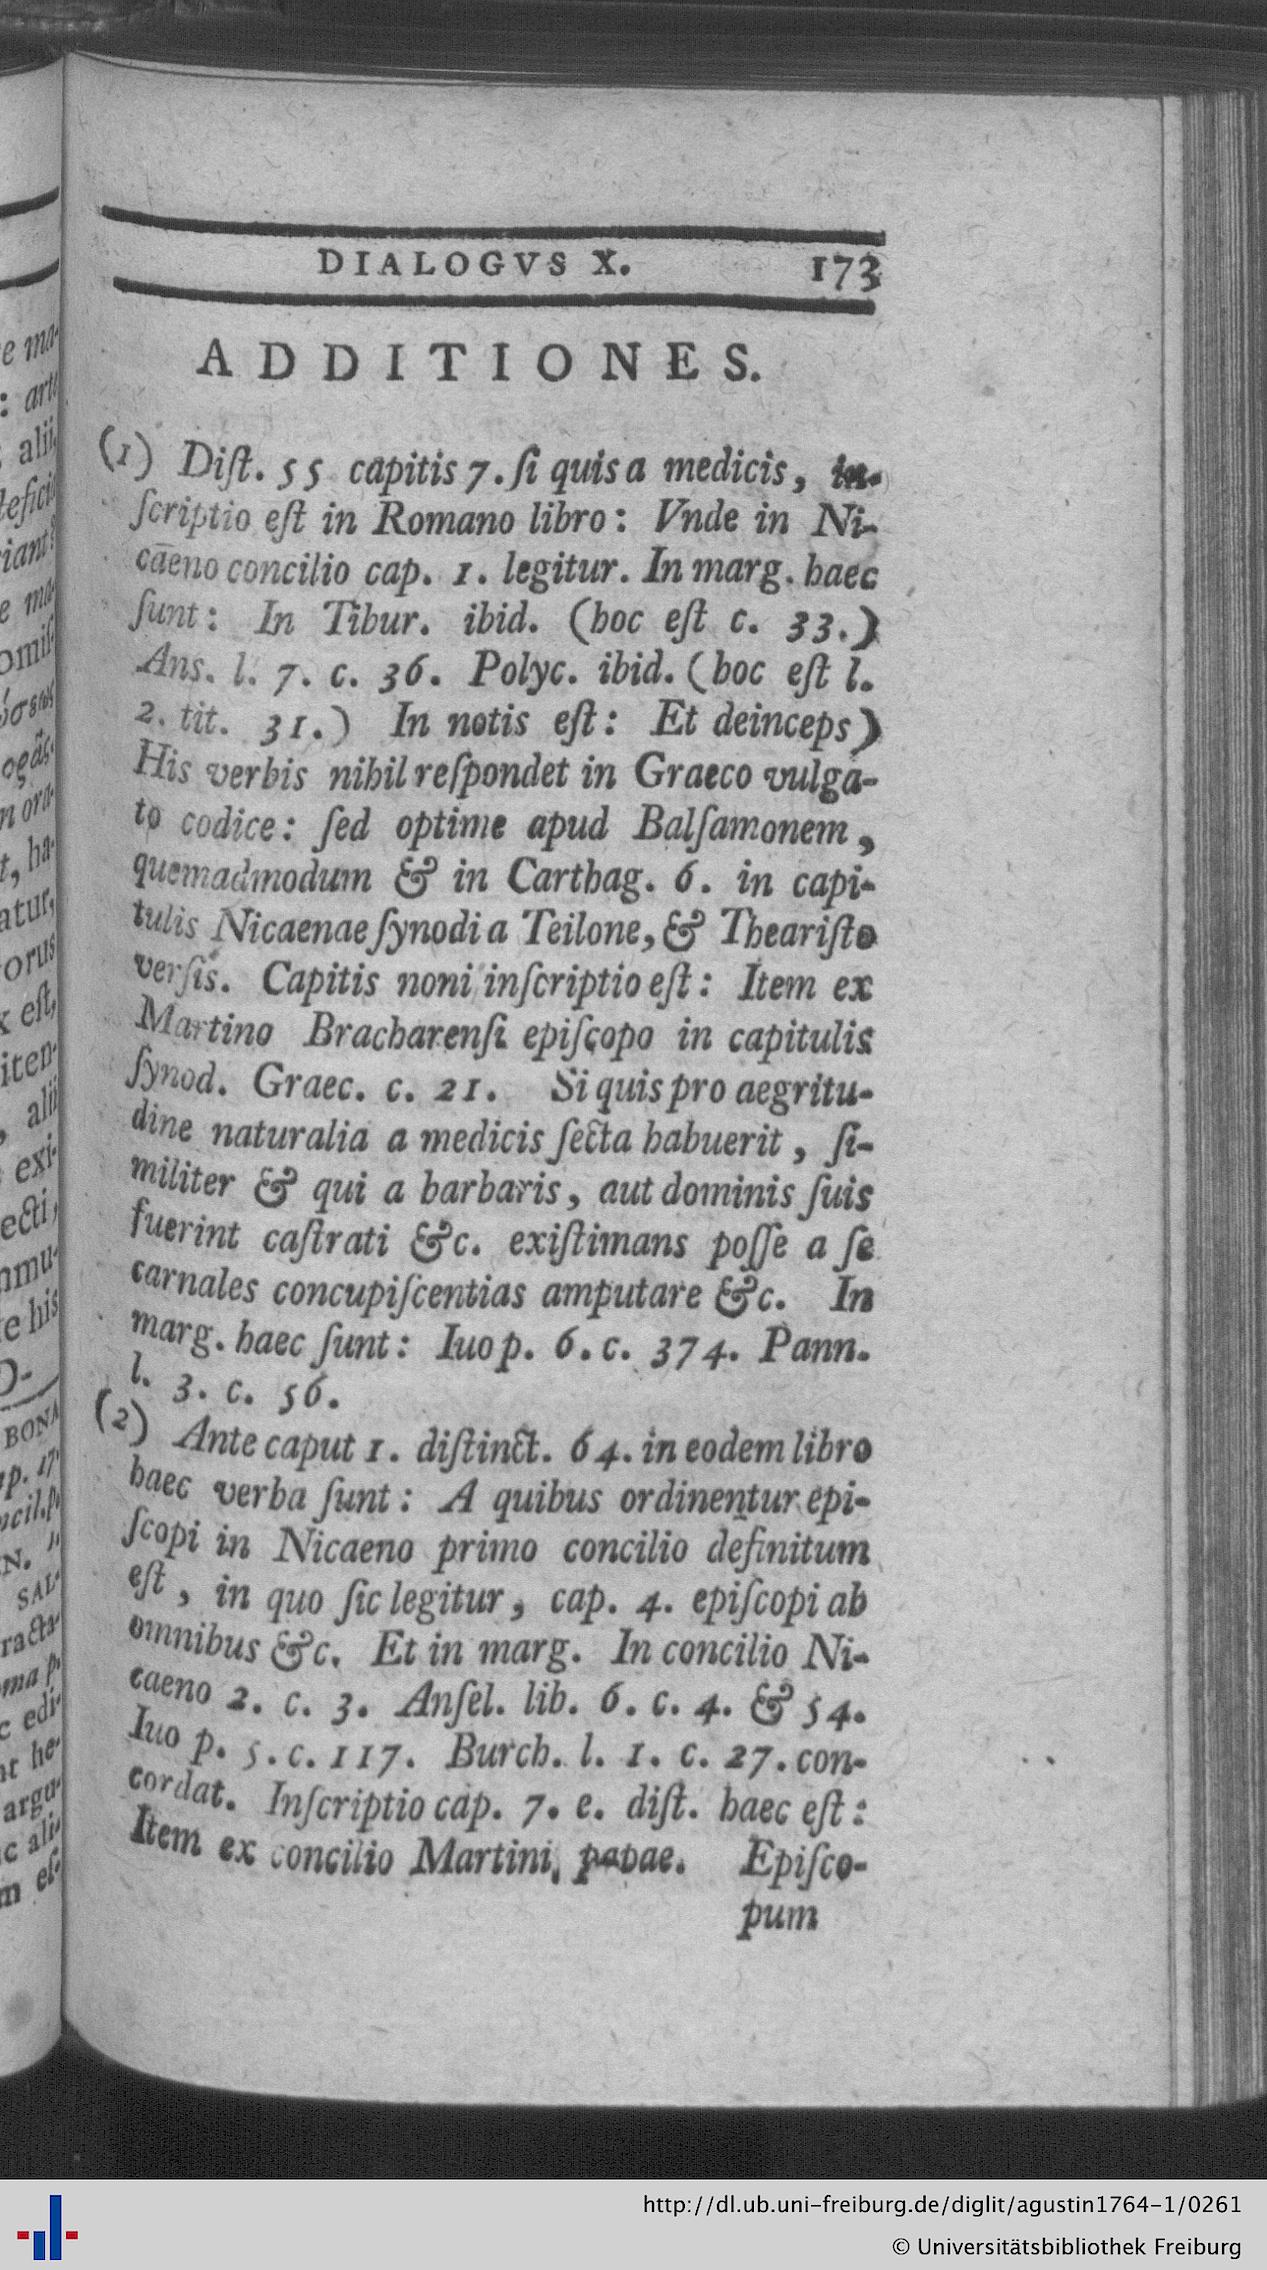 DIALOGVS X. 173
ADDITIONES.
(1) Diſt. 55 capitis 7. ſi quis a medicis, in-
ſcriptio eſt in Romano libro: Vnde in Ni-
caeno concilio cap. 1. legitur. In marg. haec
ſunt: In Tibur. ibid. (hoc eſt c. 33.)
Ans. l. 7. c. 36. Polyc. ibid. (hoc eſt l.
2. tit. 31.) In notis eſt: Et deinceps)
His verbis nihil reſpondet in Graeco vulga-
to codice: ſed optime apud Balſamonem,
quemadmodum & in Carthag. 6. in capi-
tulis Nicaenae ſynodi a Teilone, & Theariſto
verſis. Capitis noni inſcriptio eſt: Item ex
Martino Bracharenſi epiſcopo in capitulis
ſynod. Graec. c. 21. Si quis pro aegritu-
dine naturalia a medicis ſecta habuerit, ſi-
militer & qui a barbaris, aut dominis ſuis
fuerint caſtrati &c. exiſtimans poſſe a ſe
carnales concupiſcentias amputare &c. In
marg. haec ſunt: Iuo p. 6. c. 374. Pann.
l. 3. c. 56.
(2) Ante caput 1. diſtinct. 64. in eodem libro
haec verba ſunt: A quibus ordinentur epi-
ſcopi in Nicaeno primo concilio definitum
eſt, in quo ſic legitur, cap. 4. epiſcopi ab
omnibus &c. Et in marg. In concilio Ni-
caeno 2. c. 3. Anſel. lib. 6. c. 4. & 54.
Iuo p. 5. c. 117. Burch. l. 1. c. 27. con-
cordat. Inſcriptio cap. 7. e. diſt. haec eſt:
Item ex concilio Martini, papae. Epiſco-
pum
http://dl.ub.uni-freiburg.de/diglit/agustin1764-1/0261
© Universitätsbibliothek Freiburg